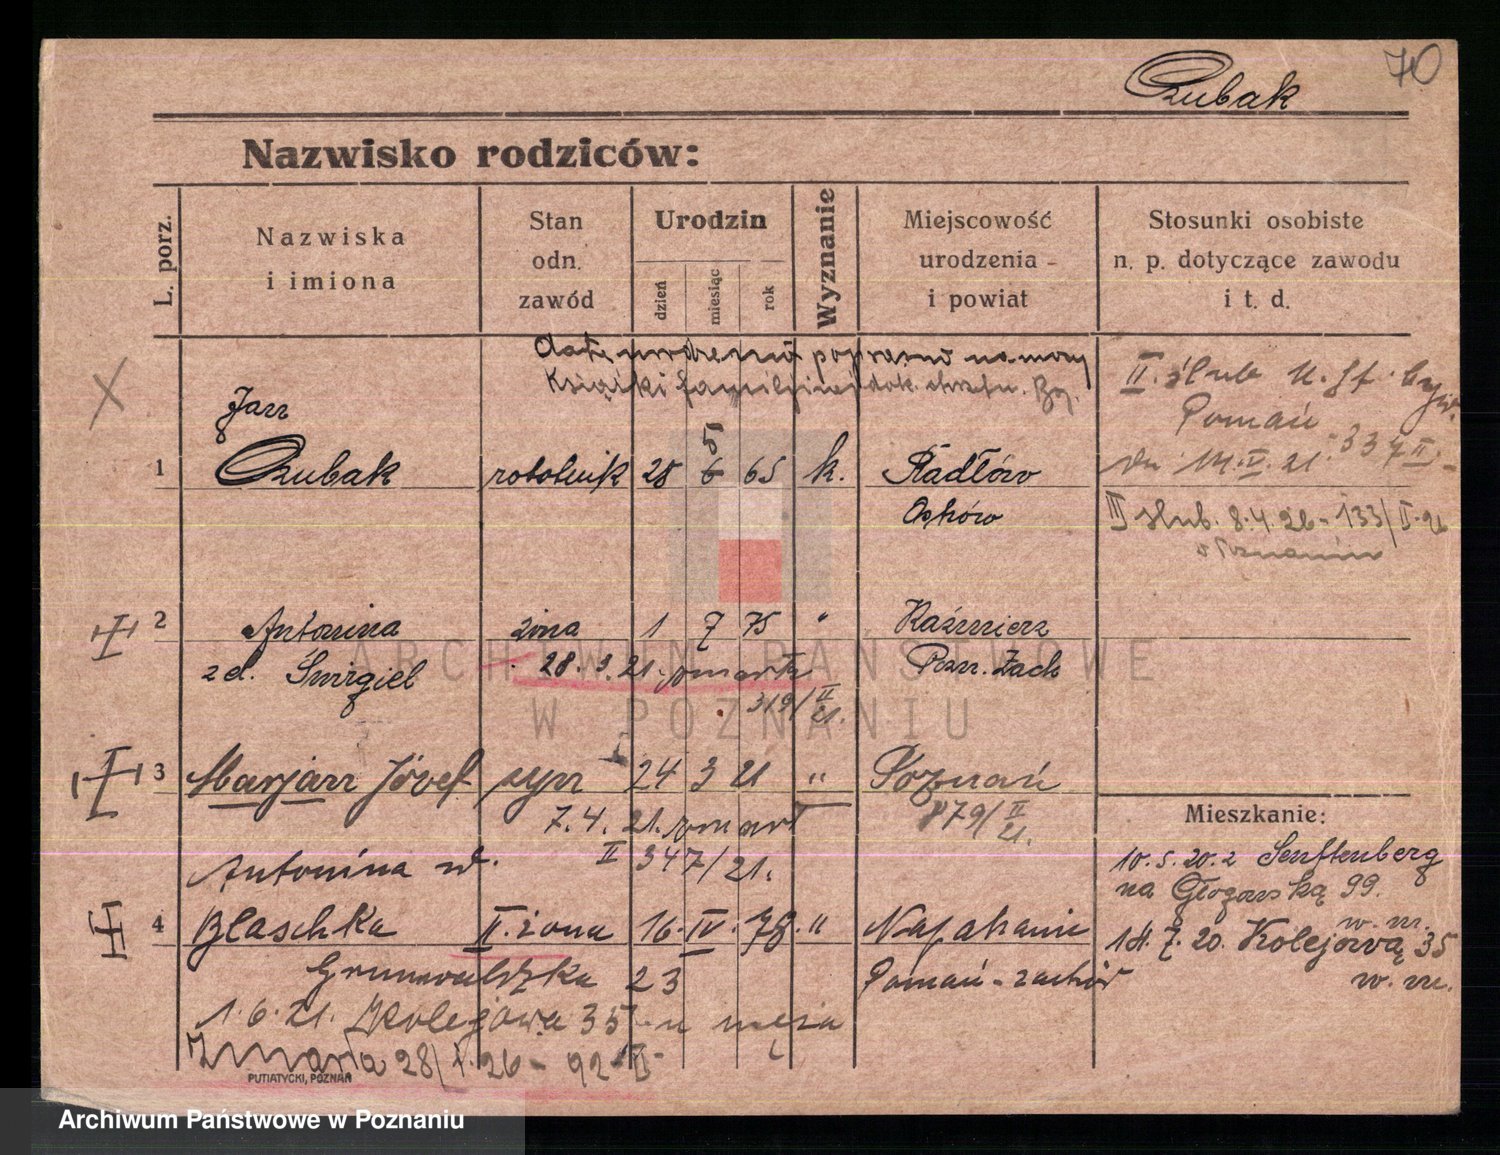 70
Czubak
Nazwisko rodziców:
L. porz.
Nazwiska
i imiona
Stan
odn.
zawód
Urodzin
dzień
miesiąc
rok
Wyznanie
Miejscowość
urodzenia
i powiat
Stosunki osobiste
n. p. dotyczące zawodu
i t. d.
datę urodzenia popraw. na mocy
Książki familijnej dok. chrztu.
Jan
1 Czubak robotnik 28 6 5 65 k. Radłów
Ostrów
II. ślub U. St.
Poznań
dn 14. V. 21. 337 II.
III ślub. 8. 4. 26 - 133/I. 26
w Poznaniu
2 Antonina żona 1 7 75 " Kaźmierz
z d. Śmigiel 28. 3. 21. zmarła Pozn. Zach
319/II 21.
3 Marjan Józef syn 24 3 21 " Poznań
7. 4. 21. zmarł 879/II 21.
II 347/21.
Antonina w.
4 Blaschka II. żona 16. IV. 78. "
Grunwaldzka 23 Poznań - zachód
1. 6. 21. Kolejowa 35 u męża
Zmarła 28/I. 26 - 92 II
Mieszkanie:
10. 5. 20. z Senftenberg
na Głogowską 99.
w. m.
14. 7. 20. Kolejową 35
w. m.
PUTIATYCKI, POZNAŃ
ARCHIWUM PAŃSTWOWE
W POZNANIU
Archiwum Państwowe w Poznaniu